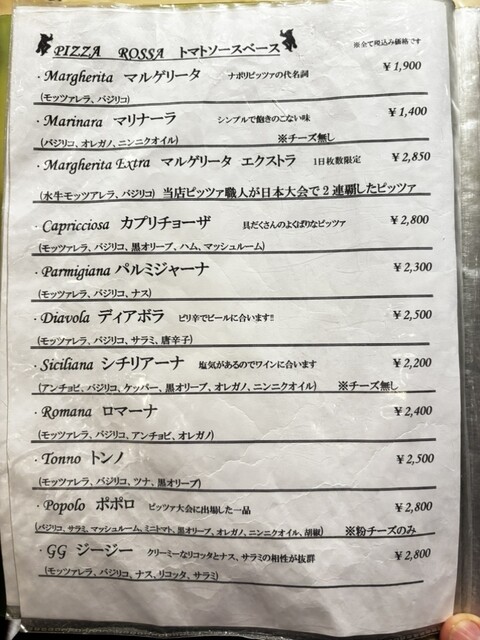 PIZZA ROSSA トマトソースベース
※全て税込み価格です
・Margherita マルゲリータ ナポリピッツァの代名詞 ¥1,900
(モッツァレラ、バジリコ)
・Marinara マリナーラ シンプルで飽きのこない味 ¥1,400
(バジリコ、オレガノ、ニンニクオイル) ※チーズ無し
・Margherita Extra マルゲリータ エクストラ 1日枚数限定 ¥2,850
(水牛モッツアレラ、バジリコ) 当店ピッツァ職人が日本大会で2連覇したピッツァ
・Capricciosa カプリチョーザ 具だくさんのよくばりなピッツァ ¥2,800
(モッツァレラ、バジリコ、黒オリーブ、ハム、マッシュルーム)
・Parmigiana パルミジャーナ ¥2,300
(モッツァレラ、バジリコ、ナス)
・Diavola ディアボラ ピリ辛でビールに合います!! ¥2,500
(モッツァレラ、バジリコ、サラミ、唐辛子)
・Siciliana シチリアーナ 塩気があるのでワインに合います ¥2,200
(アンチョビ、バジリコ、ケッパー、黒オリーブ、オレガノ、ニンニクオイル) ※チーズ無し
・Romana ロマーナ ¥2,400
(モッツァレラ、バジリコ、アンチョビ、オレガノ)
・Tonno トンノ ¥2,500
(モッツァレラ、バジリコ、ツナ、黒オリーブ)
・Popolo ポポロ ピッツァ大会に出場した一品 ¥2,800
(バジリコ、サラミ、マッシュルーム、ミニトマト、黒オリーブ、オレガノ、ニンニクオイル、胡椒) ※粉チーズのみ
・GG ジージー クリーミーなリコッタとナス、サラミの相性が抜群 ¥2,800
(モッツァレラ、バジリコ、ナス、リコッタ、サラミ)